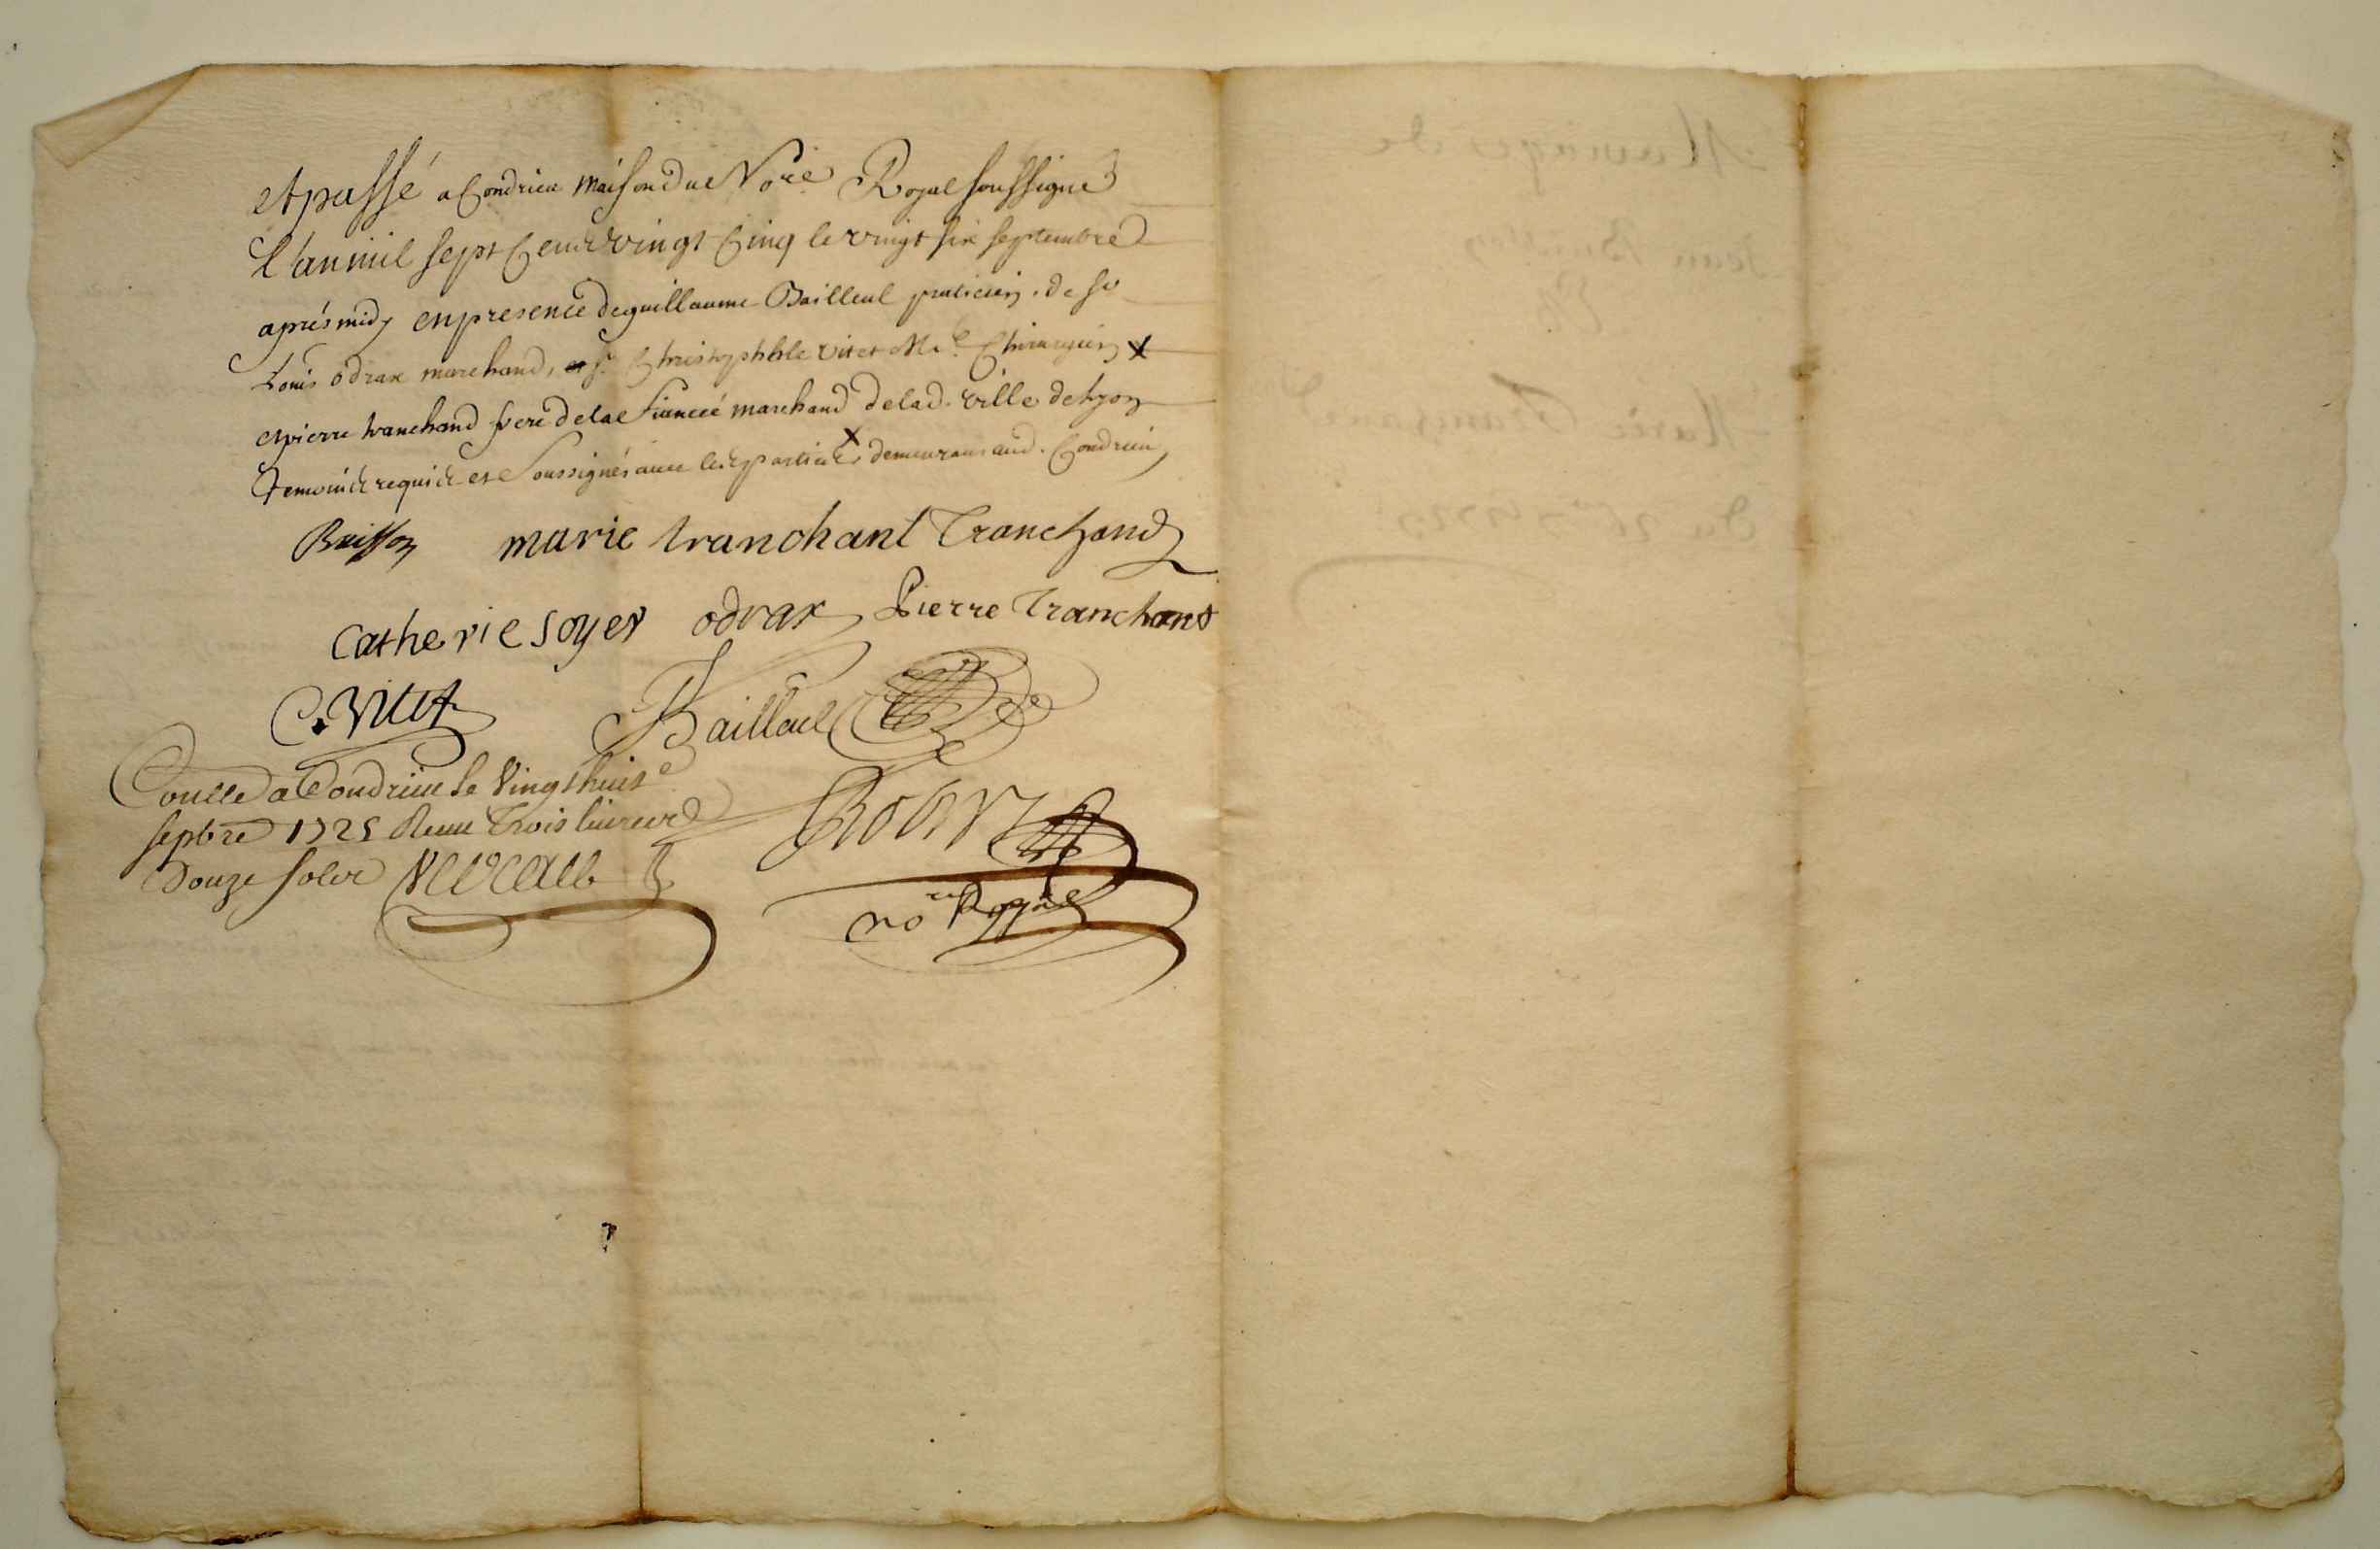 et passé a Condrieu maison du no.re Royal soussigné
l'an mil sept Cent vingt Cinq le vingt six septembre
aprés midy en presence de guillaume Bailleul praticien. de sr
Louis odrax marchand, sr Christophhle vitet Me. Chirurgien x
et pierre tranchand frere de lae fiancée marchand de lad. ville de Lyon
Temoins requis et soussignés avec les parties x demeurans aud. Condrieu
Buisson marie tranchant Tranchand
Catherie soyer odrax Pierre Tranchant
C. Vitet Bailleul
Conllé a Condrieu le Vingt huit e
septbre 1725 Receu Trois livres
Douze sols
no.re Royal
Mariages de
Jean Buisson
Et
Marie Tranchand
Du 26e 7bre 1725